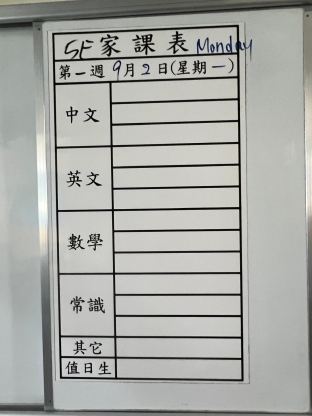 5F家課表 Monday
第一週 9月2日(星期一)
中文
英文
數學
常識
其它
值日生